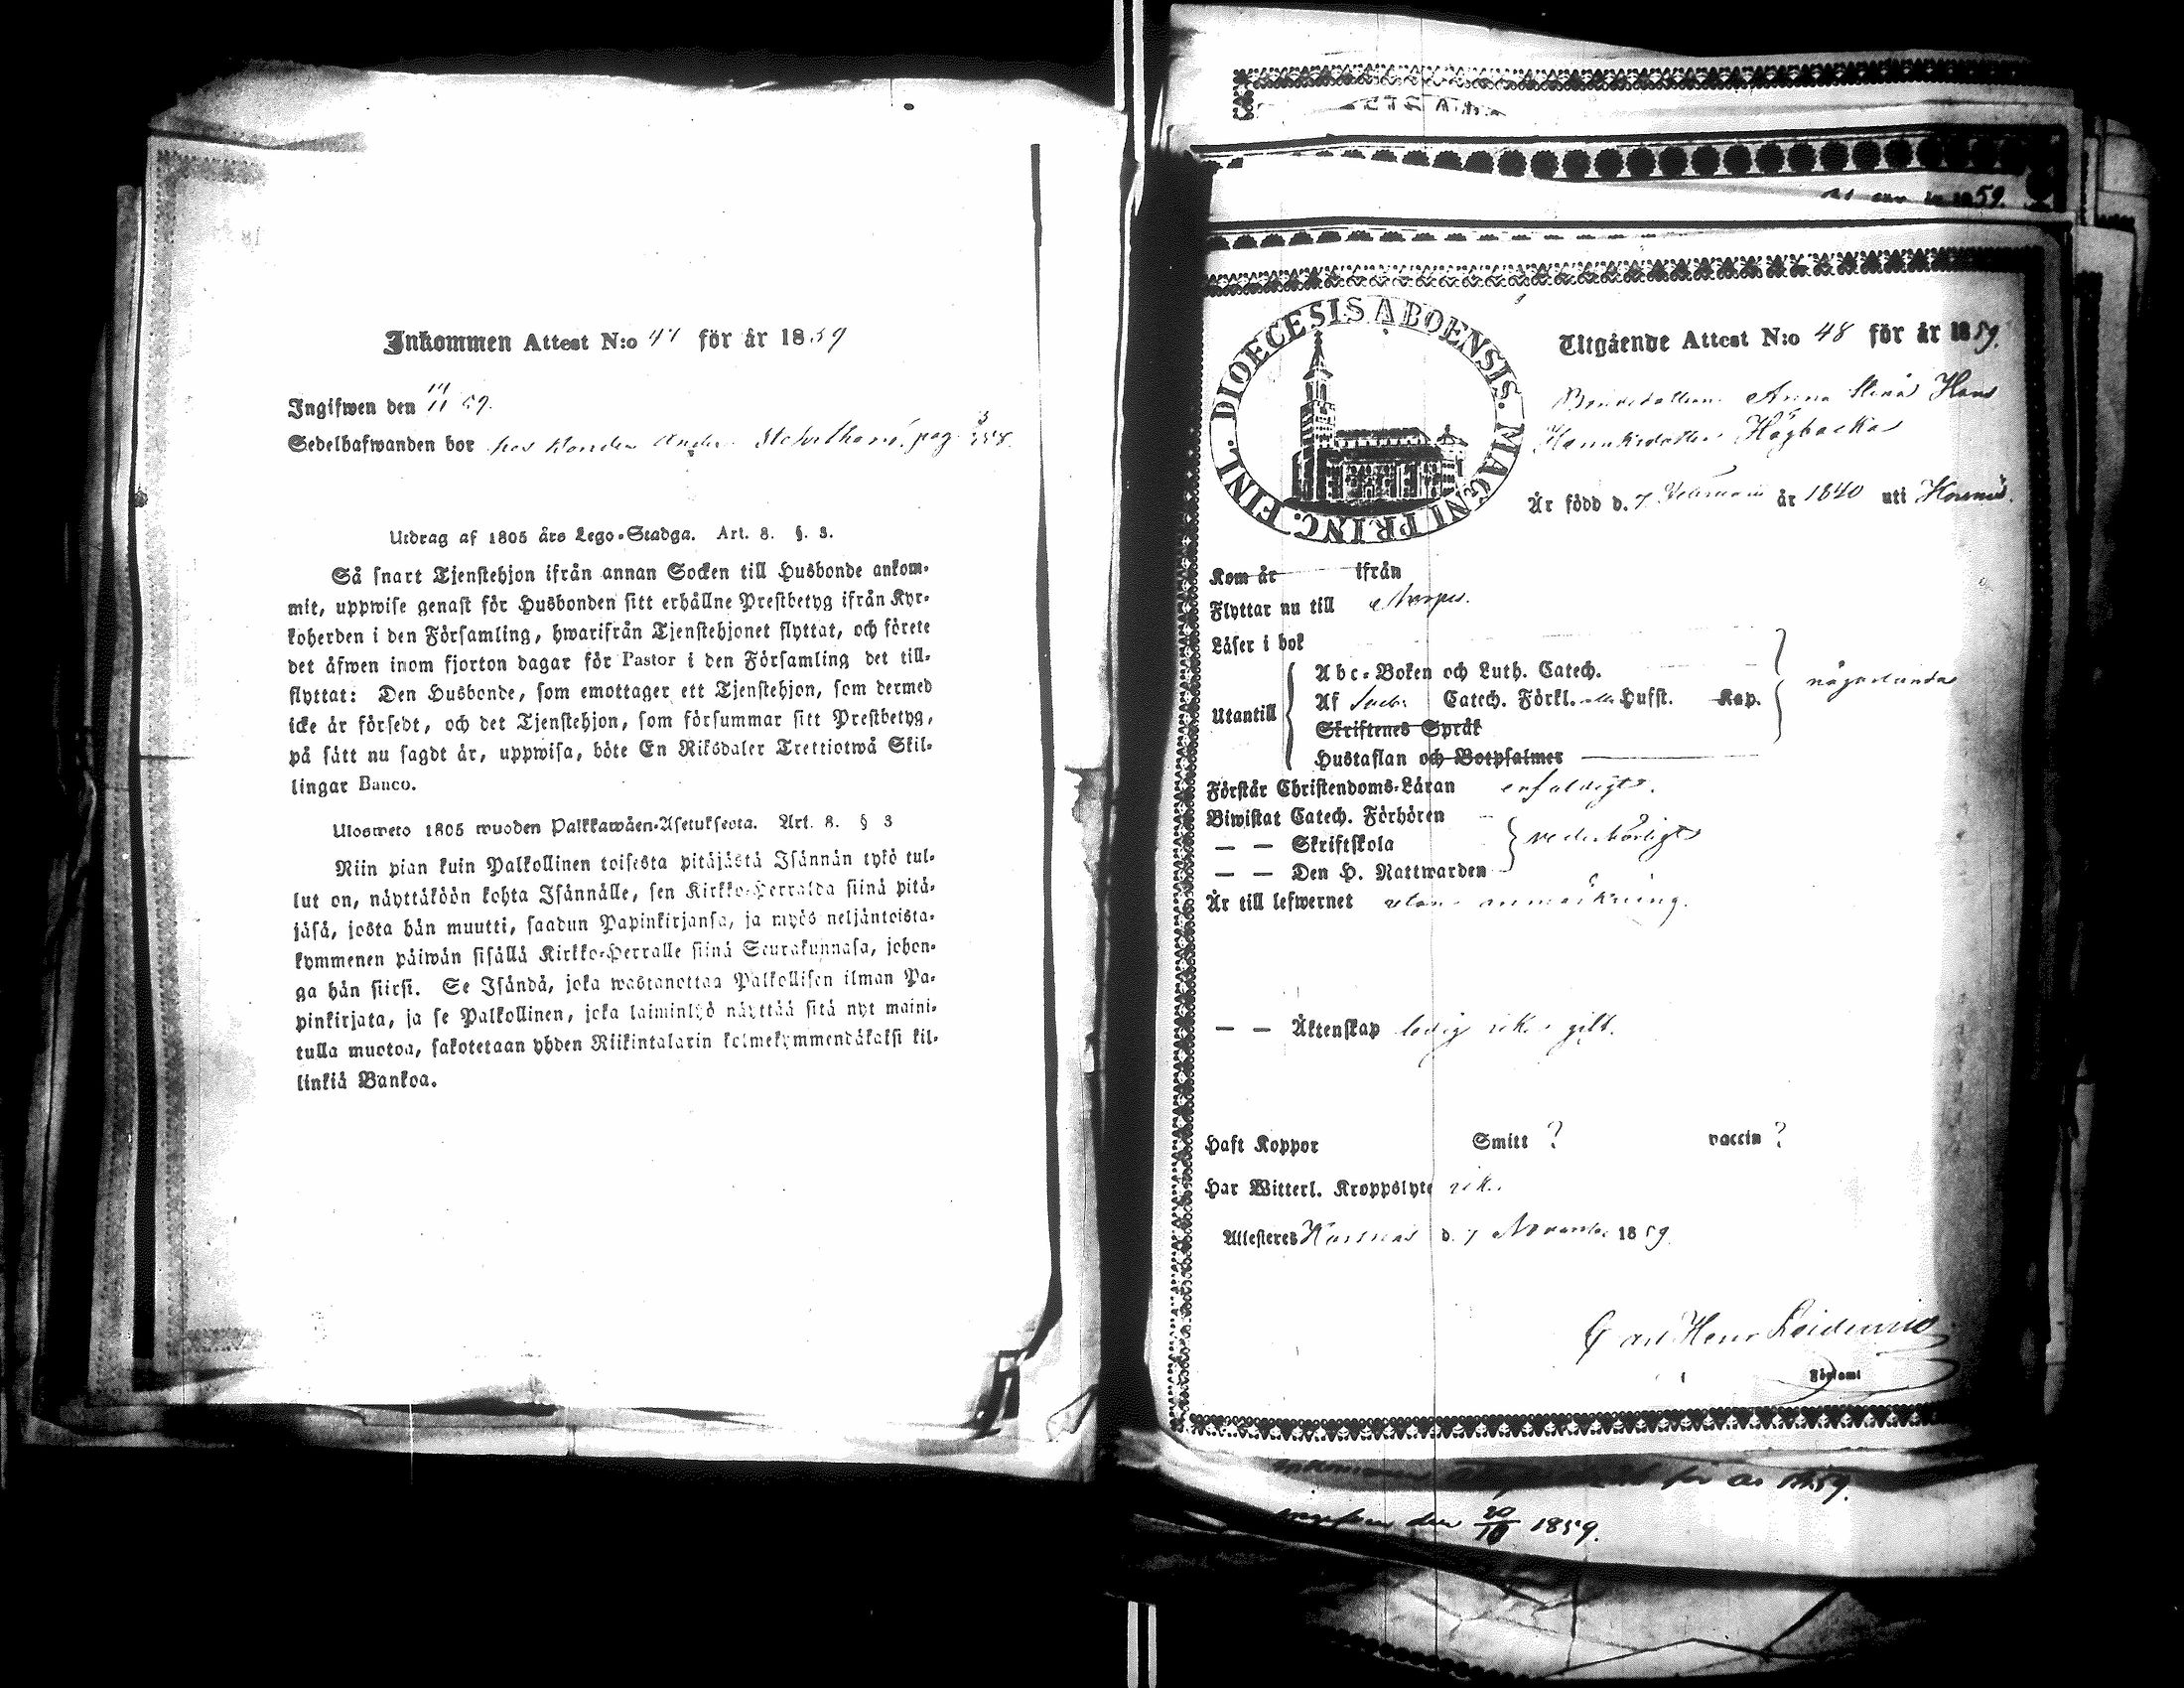 Inkommen Attest N:o 47 för år 1859
Ingifwen den 14/11 59.
Sedelhafwanden bor hos bonden Ander pag. 358.
Utdrag af 1805 års Lego-Stadga. Art. 8. §. 3.
Så snart Tjenstehjon ifrån annan Socken till Husbonde ankom-
mit, uppwise genast för Husbonden sitt erhållne Prestbetyg ifrån Kyr-
koherden i den Församling, hwarifrån Tjenstehjonet flyttat, och förete
det äfwen inom fjorton dagar för Pastor i den Församling det till-
flyttat: Den Husbonde, som emottager ett Tjenstehjon, som dermed
icke är försedt, och det Tjenstehjon, som försummar sitt Prestbetyg,
på sätt nu sagdt är, uppwisa, böte En Riksdaler Trettiotwå Skil-
lingar Banco.
Ulosweto 1805 wuoden Palkkawäen-Asetuksesta. Art. 8. § 3
Niin pian kuin Palkollinen toisesta pitäjästä Isännän tykö tul-
lut on, näyttäköön kohta Isännälle, sen Kirkko-Herralda siinä pitä-
jäsä, josta hän muutti, saadun Papinkirjansa, ja myös neljäntoista-
kymmenen päiwän sisällä Kirkko-Herralle siinä Seurakunnasa, johon-
ga hän siirsi. Se Isändä, joka wastanottaa Palkollisen ilman Pa-
pinkirjata, ja se Palkollinen, joka laiminlyö näyttää sitä nyt maini-
tulla muotoa, sakotetaan yhden Riikintalarin kolmekymmendäkaksi kil-
linkiä Bankoa.
59.
FINL. DIOECESIS ABOENSIS. MAGNI PRINC.
Utgående Attest N:o 48 för år 1859.
Bondedottern Anna Stina Hans
Henriksdotter Högbacka
Är född d. 7 Februarii år 1840 uti Korsnäs.
Kom år ifrån
Flyttar nu till Nerpes.
Läser i bok
Utantill
Abc-Boken och Luth. Catech.
Af Sveb. Catech. Förkl. Hufst. Kap.
någorlunda
Skriftenes Språk
Hustaflan och Botpsalmer
Förstår Christendoms-Läran enfaldigt.
Biwistat Catech. Förhören
— — Skriftskola
wederbörligt
— — Den H. Nattwarden
Är till lefwernet utan anmärkning.
— — Äktenskap ledig icke gift.
Haft Koppor Smitt ? vaccin ?
Har Witterl. Kroppslyte icke.
Attesteres Korsnäs d. 7 November 1859.
Carl Henr Leidenius
Församl
Inkommen för år 1859.
den 20/10 1859.